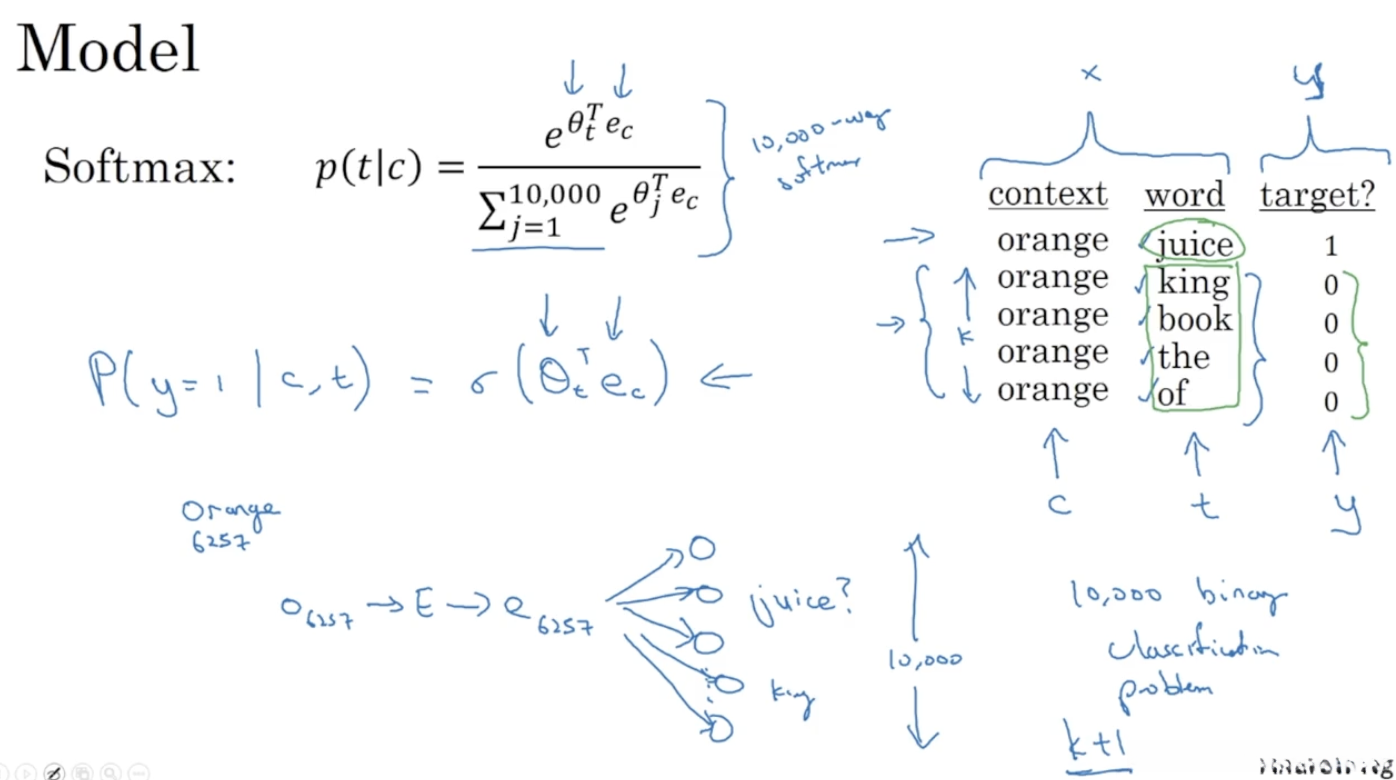 Model
Softmax: p(t|c) = e^{θ_t^T e_c} / ∑_{j=1}^{10,000} e^{θ_j^T e_c}
10,000-way
softmax
P(y=1 | c,t) = σ(θ_t^T e_c) ←
x y
context word target?
orange juice 1
orange king 0
orange book 0
orange the 0
orange of 0
k
c t y
Orange
6257
O_{6257} → E → e_{6257}
juice?
king
10,000
10,000 binary
classification
problem
k+1